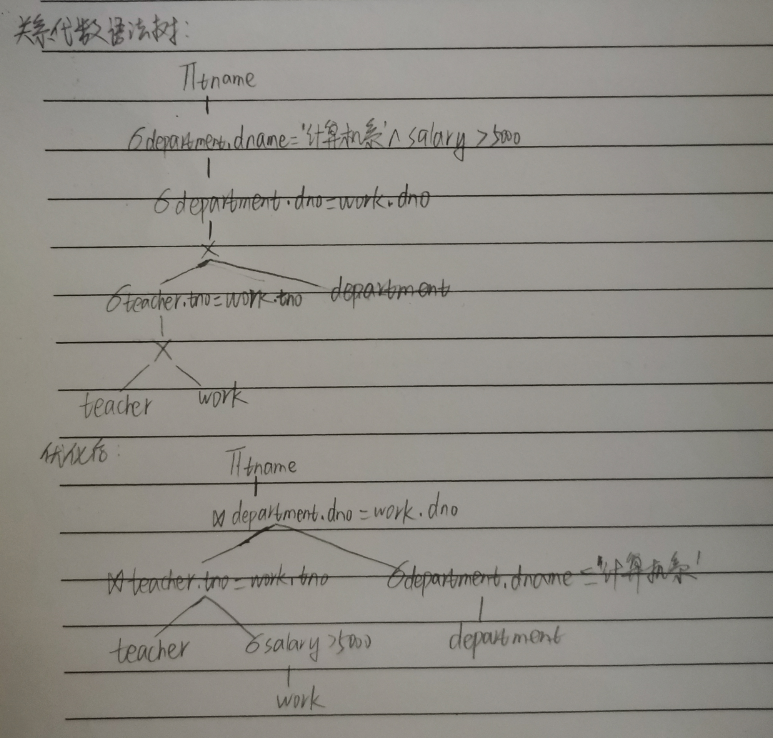 关系代数语法树:
Πtname
σdepartment.dname='计算机系'∧salary>5000
σdepartment.dno=work.dno
×
σteacher.tno=work.tno department
×
teacher work
优化后:
Πtname
⋈department.dno=work.dno
⋈teacher.tno=work.tno σdepartment.dname='计算机系'
teacher σsalary>5000 department
work